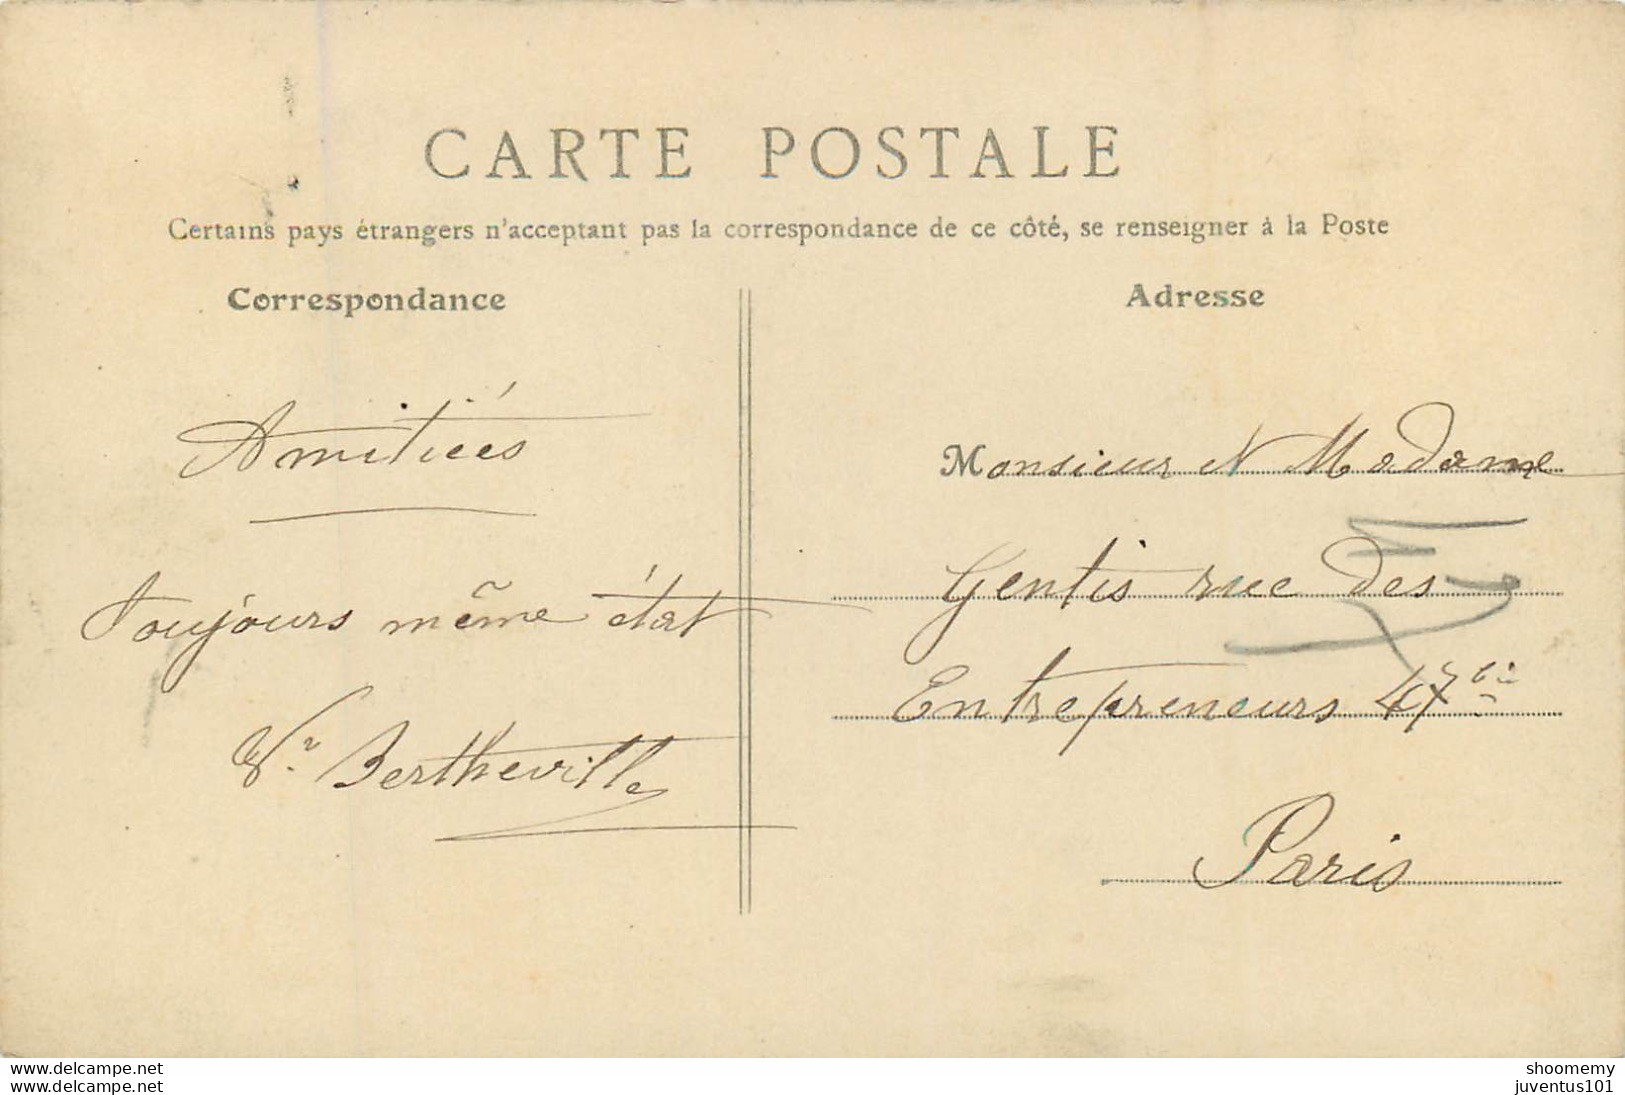 CARTE POSTALE
Certains pays étrangers n'acceptant pas la correspondance de ce côté, se renseigner à la Poste
Correspondance
Amitiées
Toujours même état
Vve Bertheville
Adresse
Monsieur et Madame
Gentis rue des
Entrepreneurs 47 bis
Paris
www.delcampe.net
www.delcampe.net
shoomemy
juventus101